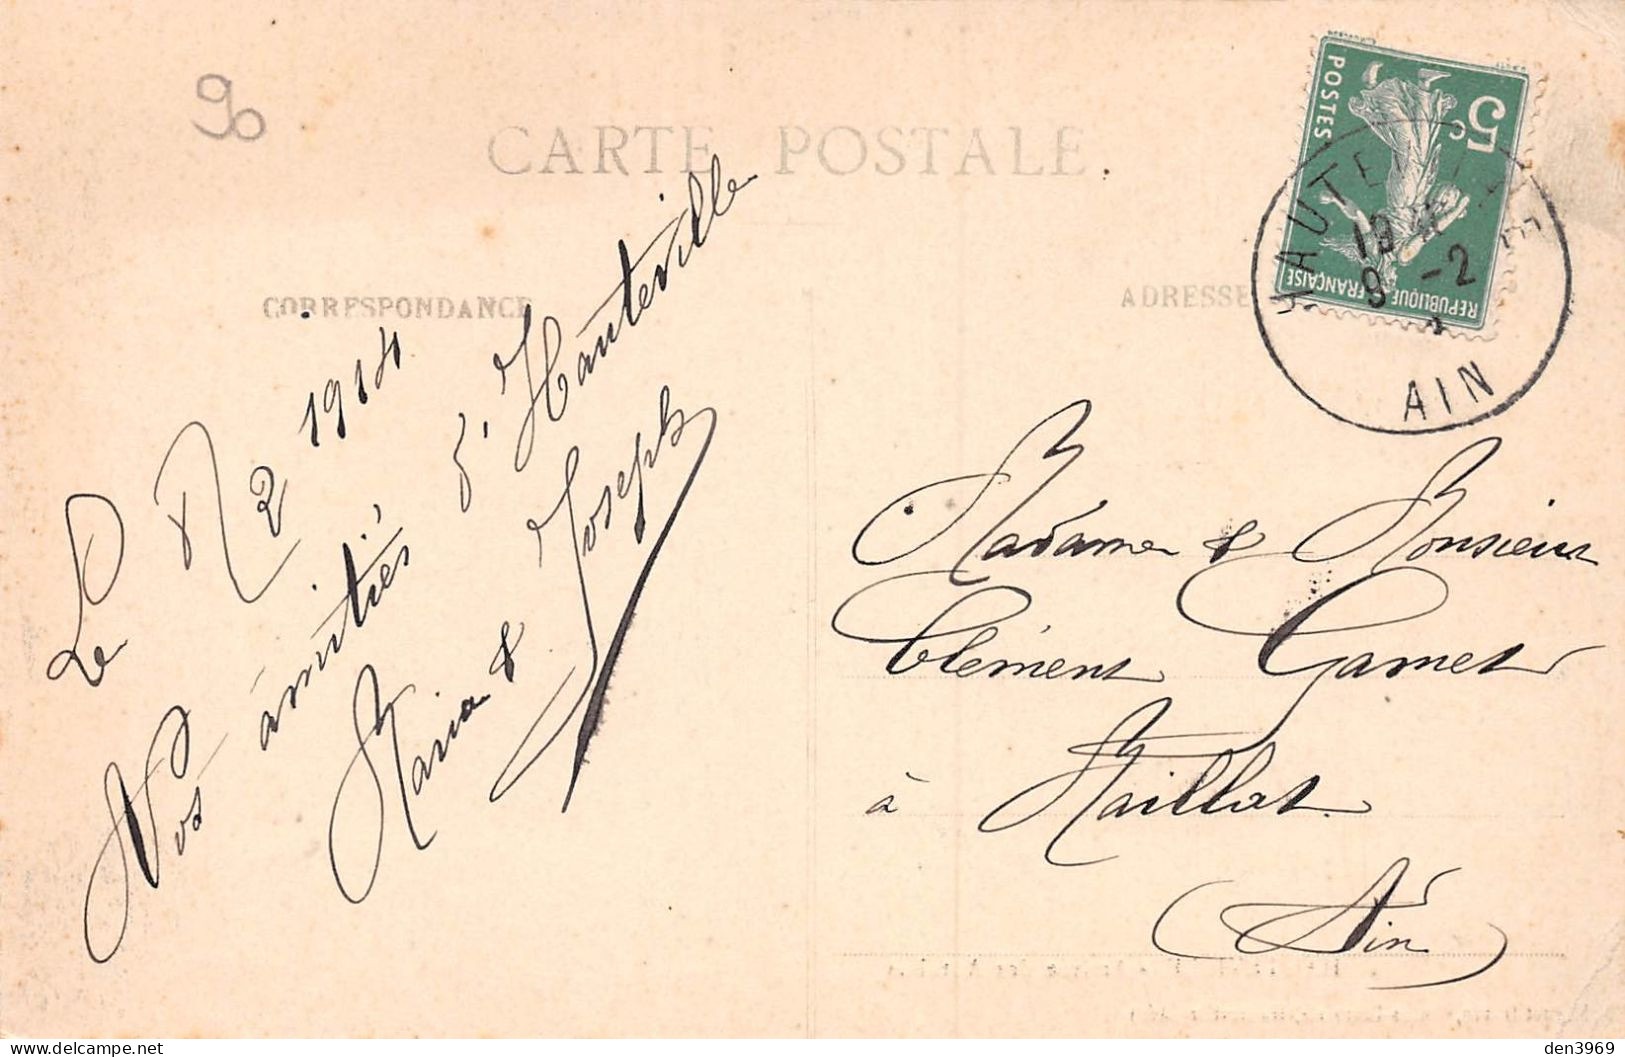 90
CARTE POSTALE
CORRESPONDANCE
ADRESSE
POSTES
5c
REPUBLIQUE FRANÇAISE
HAUTEVILLE
9 -2
AIN
Le 2 1914
Nos amitiés d'Hauteville
Maria & Joseph
Madame & Monsieur
Clément Gamet
à Maillat
(Ain)
den3969